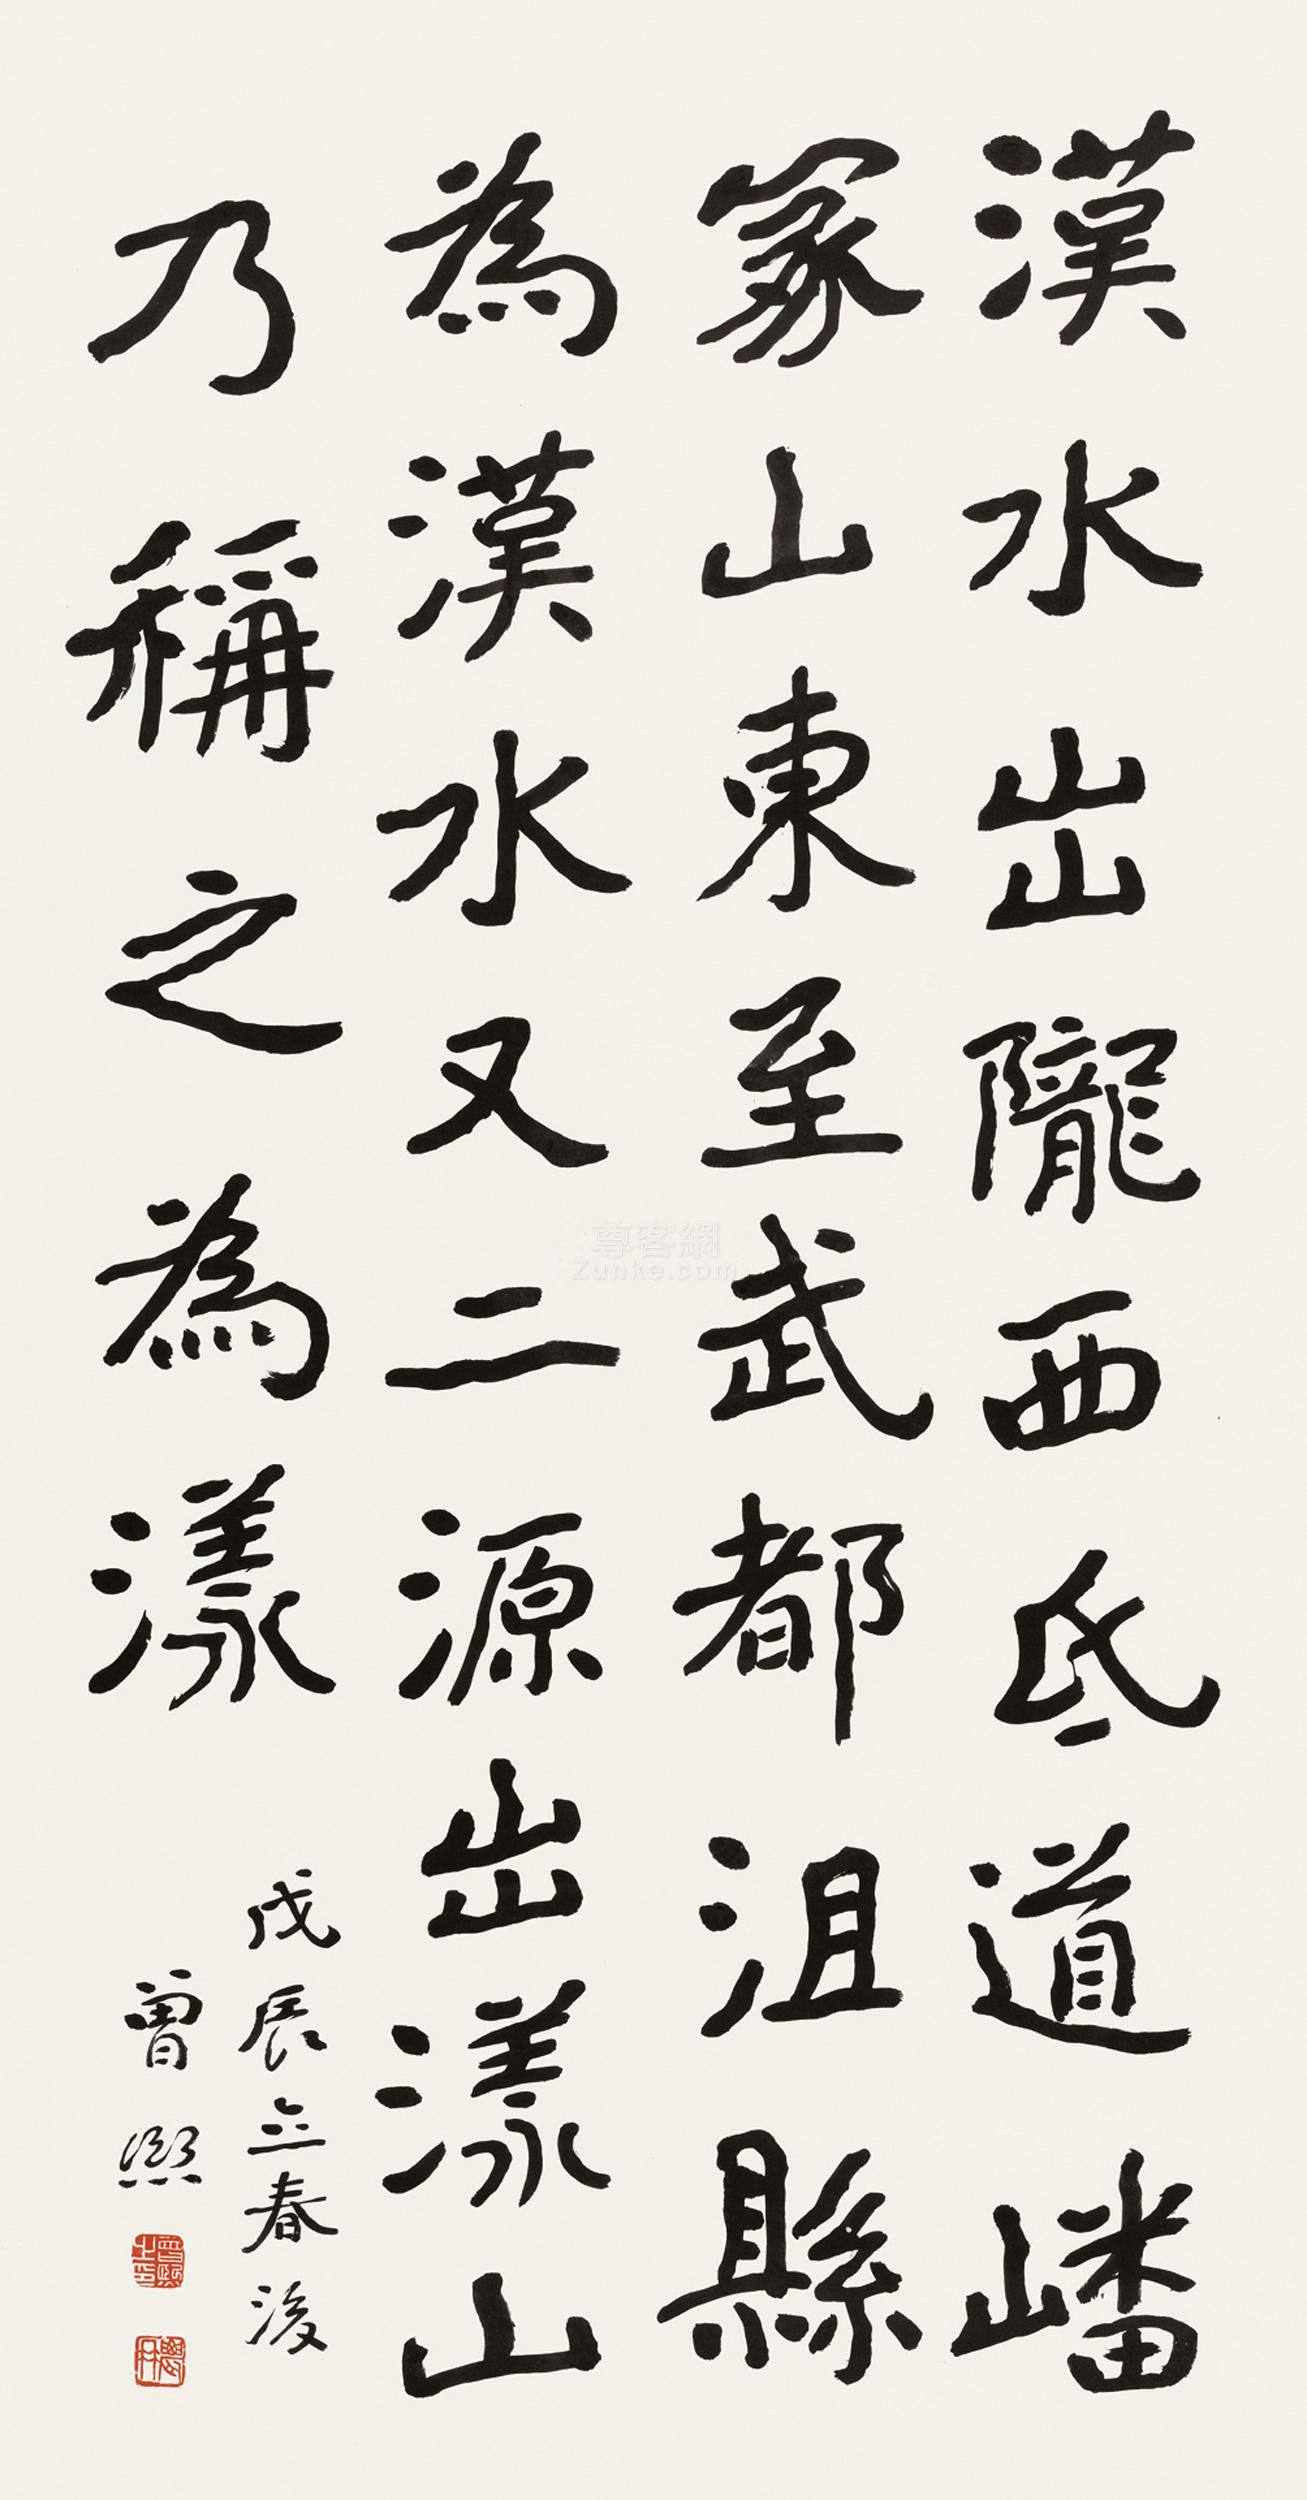 漢水出隴西氐道嶓
冢山東至武都沮縣
為漢漢水又二源出漾山
乃稱之為漾
戊辰立春後
曾熙
尊客網
Zunke.com